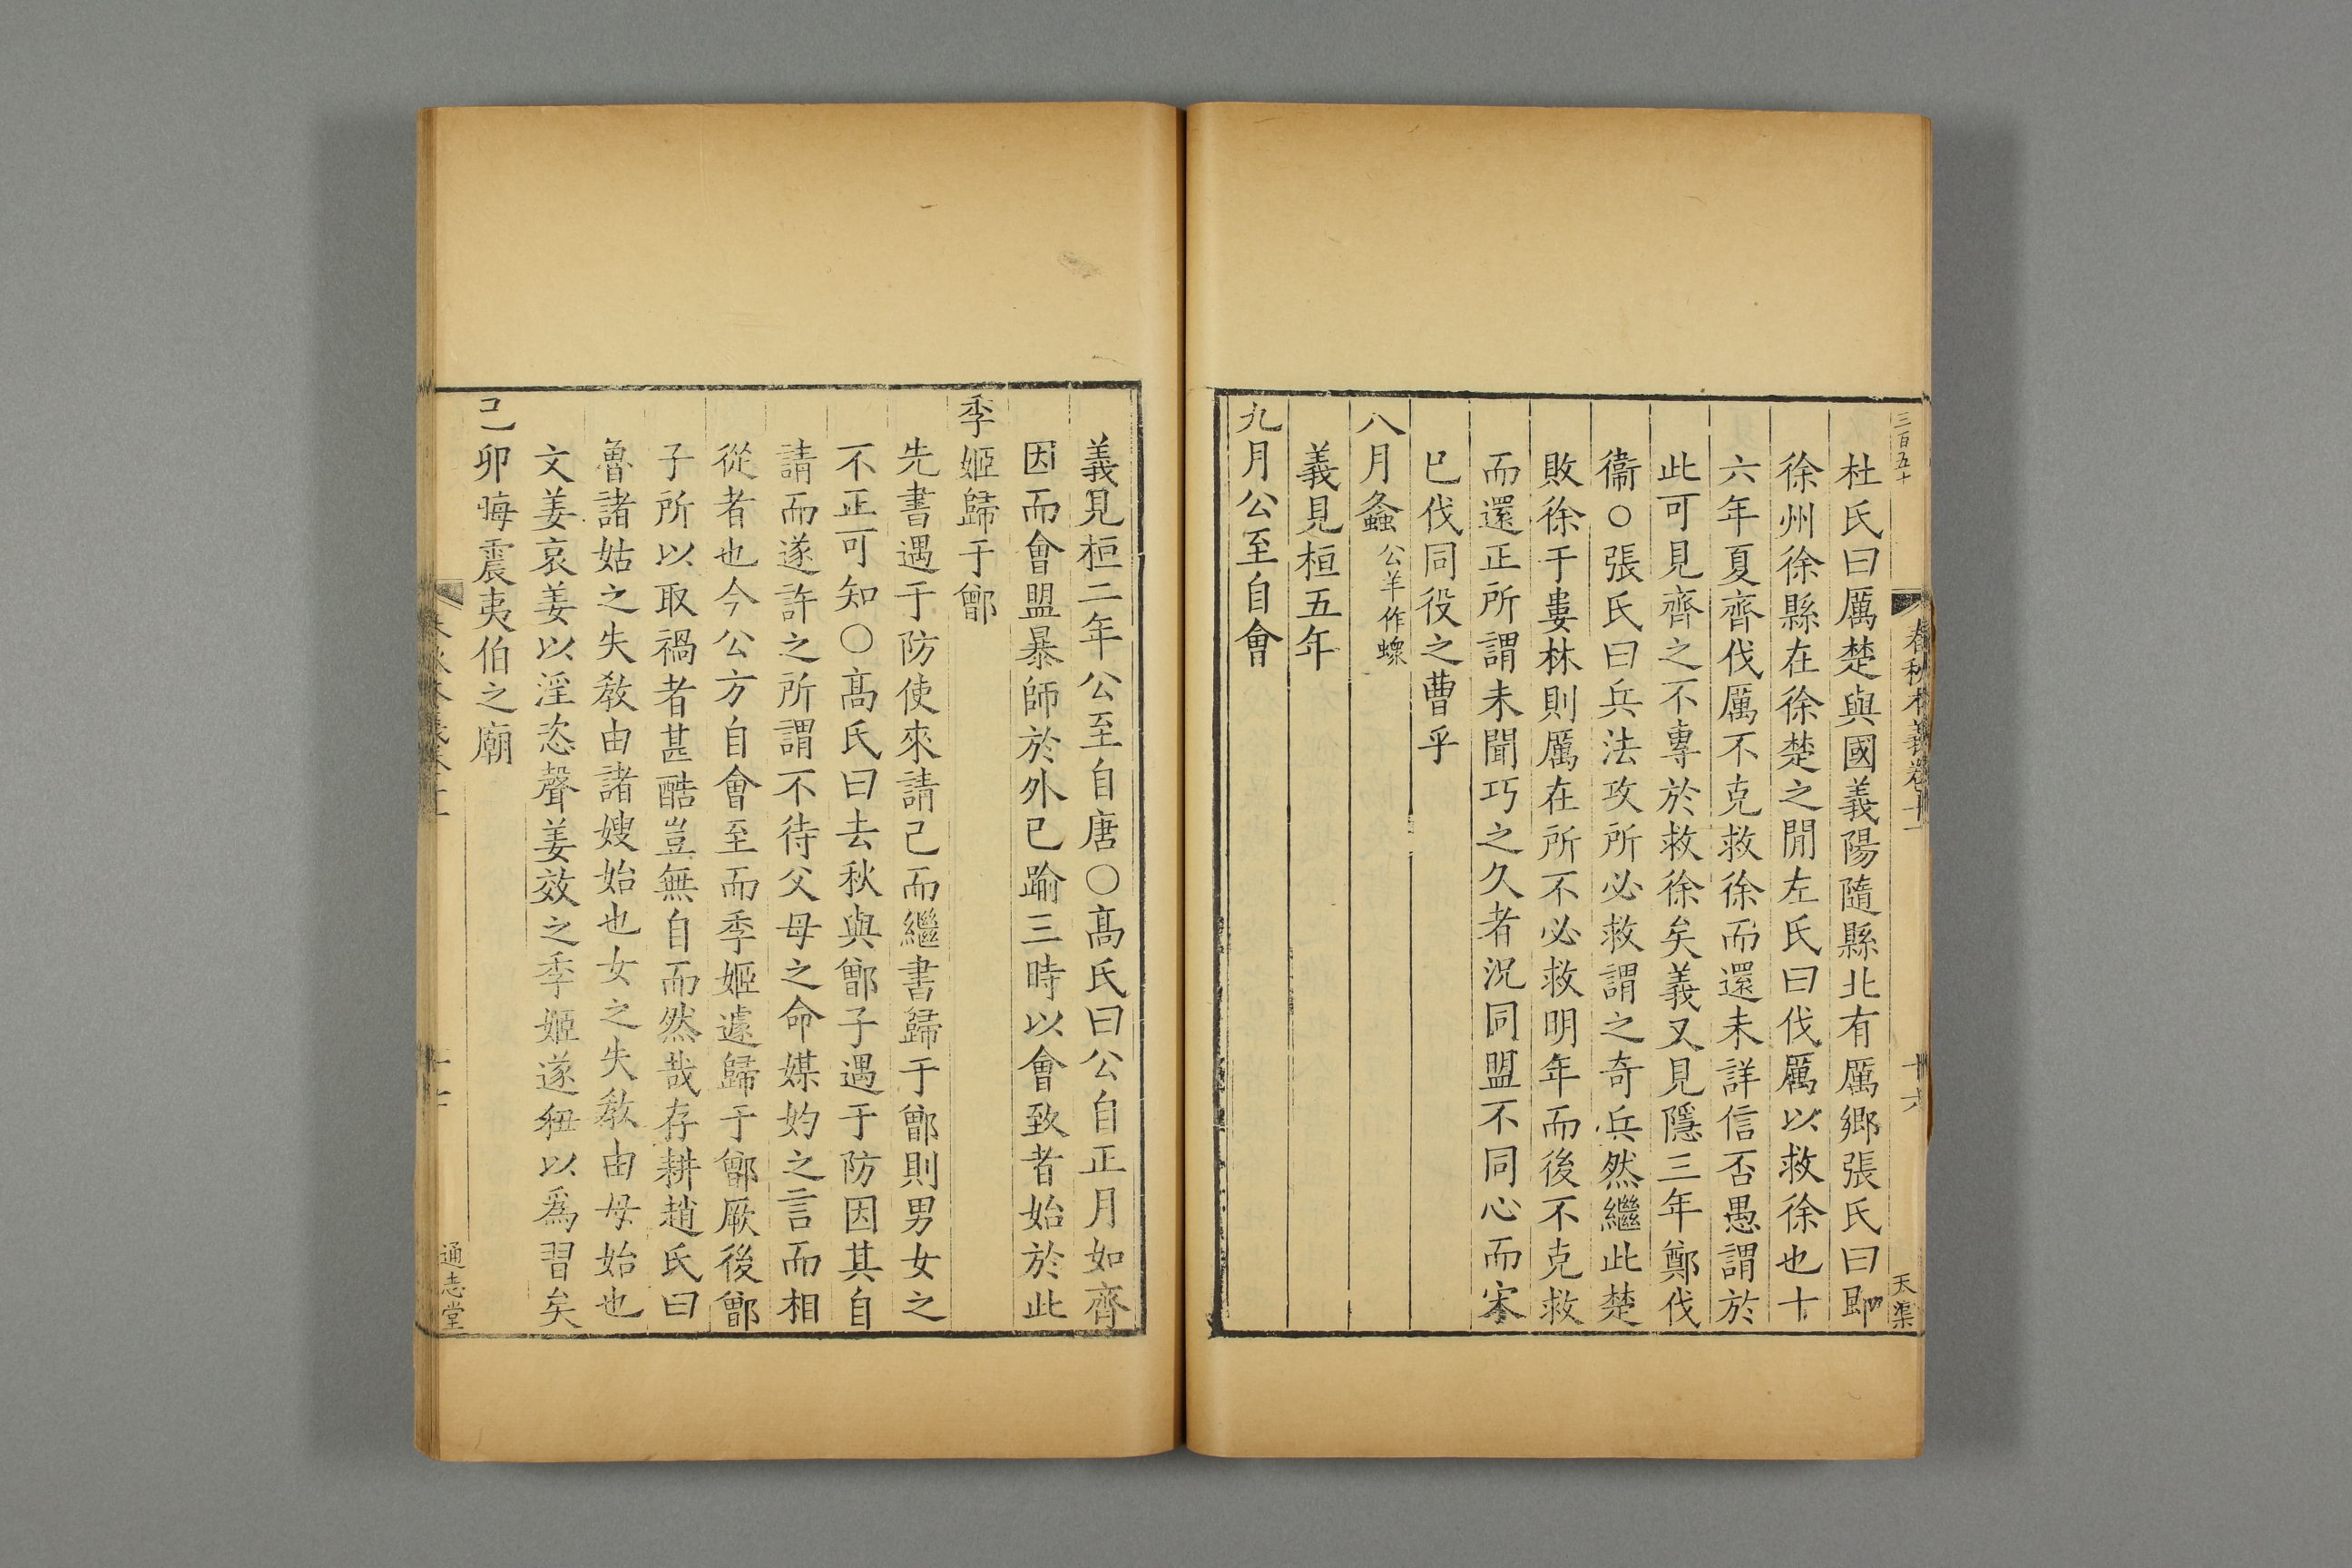 三百五十
春秋本義卷十一
十六
天渠
杜氏曰厲楚與國義陽隨縣北有厲鄉張氏曰即
徐州徐縣在徐楚之閒左氏曰伐厲以救徐也十
六年夏齊伐厲不克救徐而還未詳信否愚謂於
此可見齊之不專於救徐矣義又見隱三年鄭伐
衞○張氏曰兵法攻所必救謂之奇兵然繼此楚
敗徐于婁林則厲在所不必救明年而後不克救
而還正所謂未聞巧之久者況同盟不同心而宋
已伐同役之曹乎
八月螽公羊作蝝
義見桓五年
九月公至自會
義見桓二年公至自唐○髙氏曰公自正月如齊
因而會盟暴師於外已踰三時以會致者始於此
季姬歸于鄫
先書遇于防使來請己而繼書歸于鄫則男女之
不正可知○髙氏曰去秋與鄫子遇于防因其自
請而遂許之所謂不待父母之命媒妁之言而相
從者也今公方自會至而季姬遽歸于鄫厥後鄫
子所以取禍者甚酷豈無自而然哉存耕趙氏曰
魯諸姑之失敎由諸嫂始也女之失敎由母始也
文姜哀姜以淫恣聲姜效之季姬遂狃以爲習矣
己卯晦震夷伯之廟
通志堂